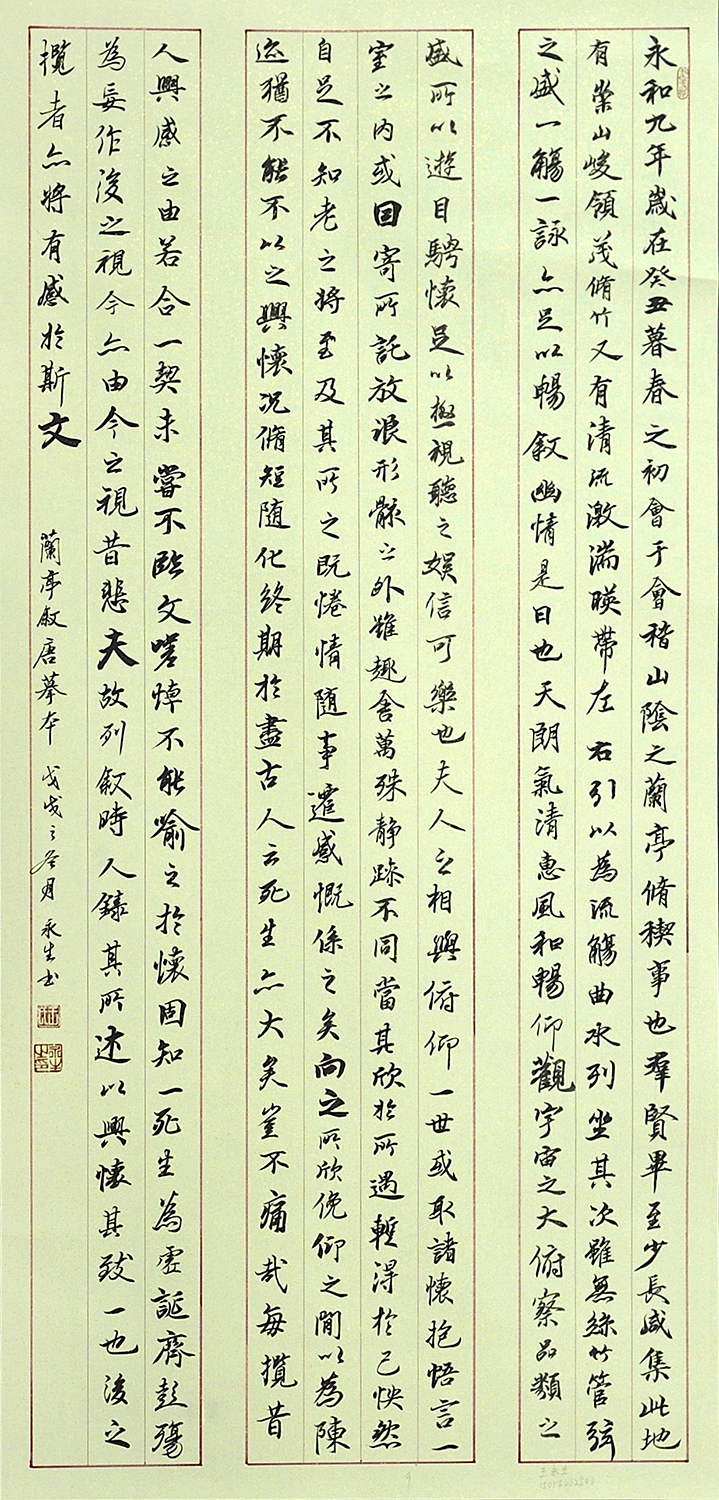 永和九年歲在癸丑暮春之初會于會稽山陰之蘭亭脩稧事也羣賢畢至少長咸集此地
有崇山峻領茂脩竹又有清流激湍暎帶左右引以為流觴曲水列坐其次雖無絲竹管弦
之盛一觴一詠亦足以暢敘幽情是日也天朗氣清惠風和暢仰觀宇宙之大俯察品類之
盛所以遊目騁懷足以極視聽之娛信可樂也夫人之相與俯仰一世或取諸懷抱悟言一
室之內或因寄所託放浪形骸之外雖趣舍萬殊静躁不同當其欣於所遇暫得於己怏然
自足不知老之將至及其所之既惓情随事遷感慨係之矣向之所欣俛仰之間以為陳
迹猶不能不以之興懷況脩短随化終期於盡古人云死生亦大矣豈不痛哉每攬昔
人興感之由若合一契未嘗不臨文嗟悼不能喻之於懷固知一死生為虛誕齊彭殤
為妄作後之視今亦由今之視昔悲夫故列敘時人錄其所述以興懷其致一也後之
攬者亦將有感於斯文
蘭亭敘唐摹本 戊戌之冬月 永生书